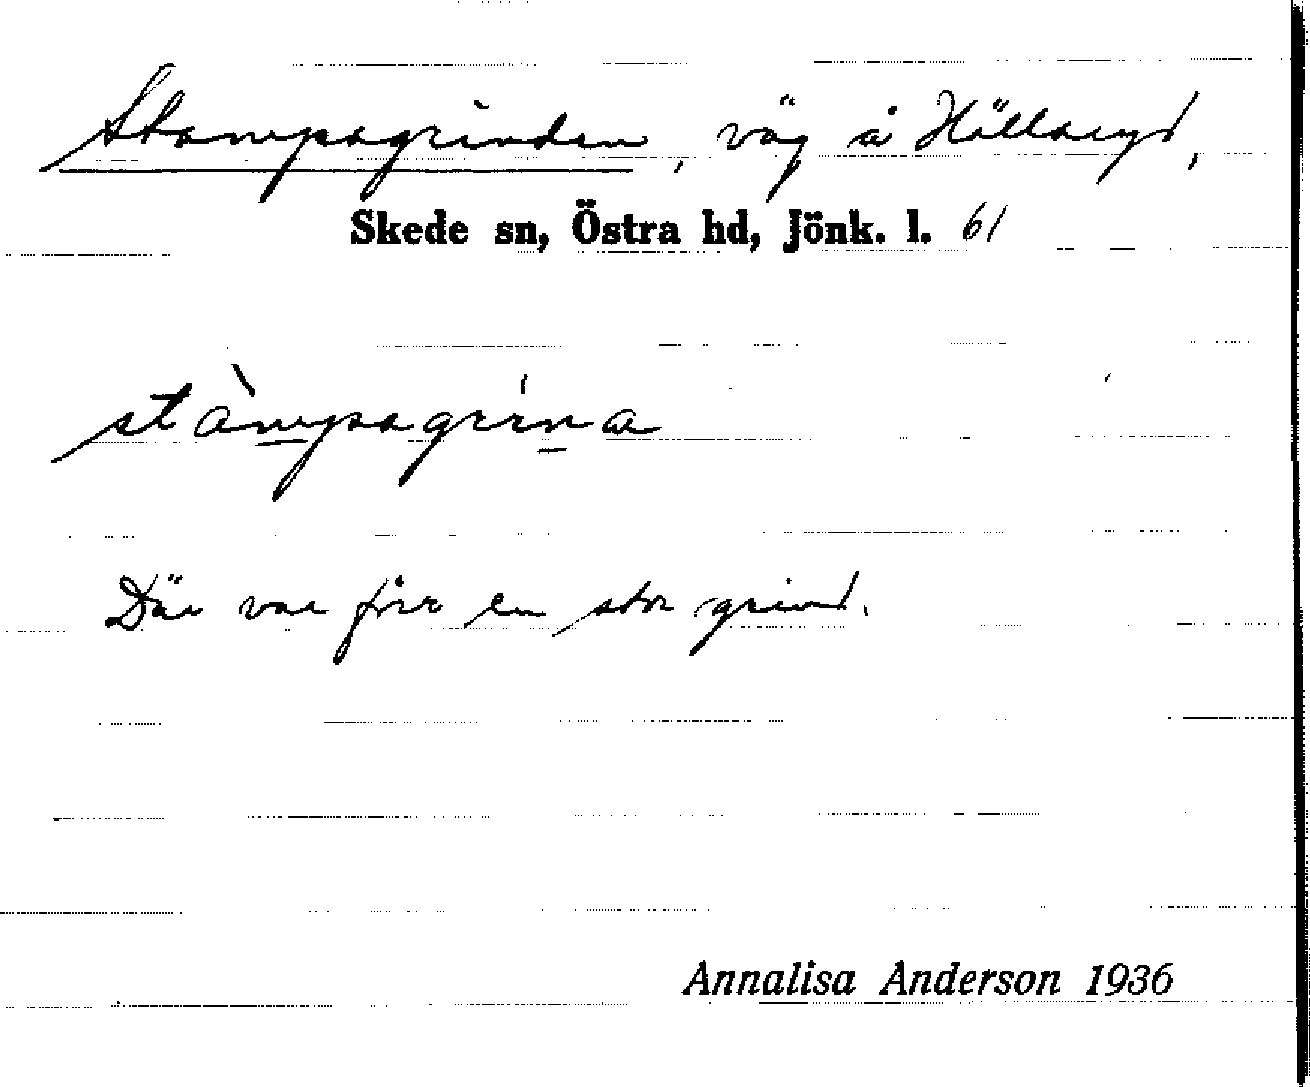 Stampagrinden, väg å Hällaryd,
Skede sn, Östra hd, Jönk. l. 61
stàmpagrina
Där var förr en stor grind.
Annalisa Anderson 1936